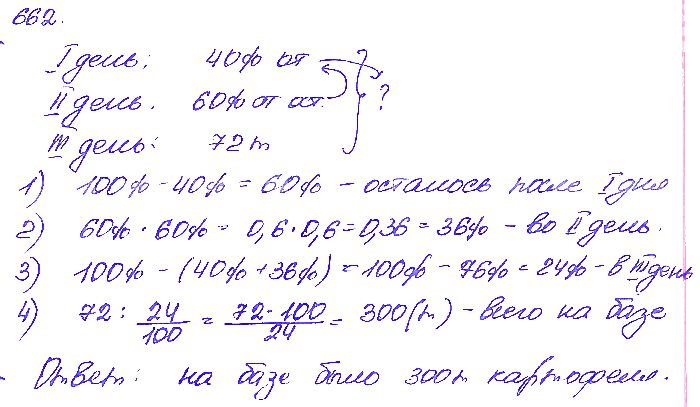 662.
I день: 40% от
II день. 60% от ост. ?
III день: 72 т
1) 100% - 40% = 60% - осталось после I дня
2) 60% · 60% = 0,6 · 0,6 = 0,36 = 36% - во II день.
3) 100% - (40% + 36%) = 100% - 76% = 24% - в III день
4) 72 : 24/100 = 72·100/24 = 300 (т) - всего на базе
Ответ: на базе было 300т картофеля.